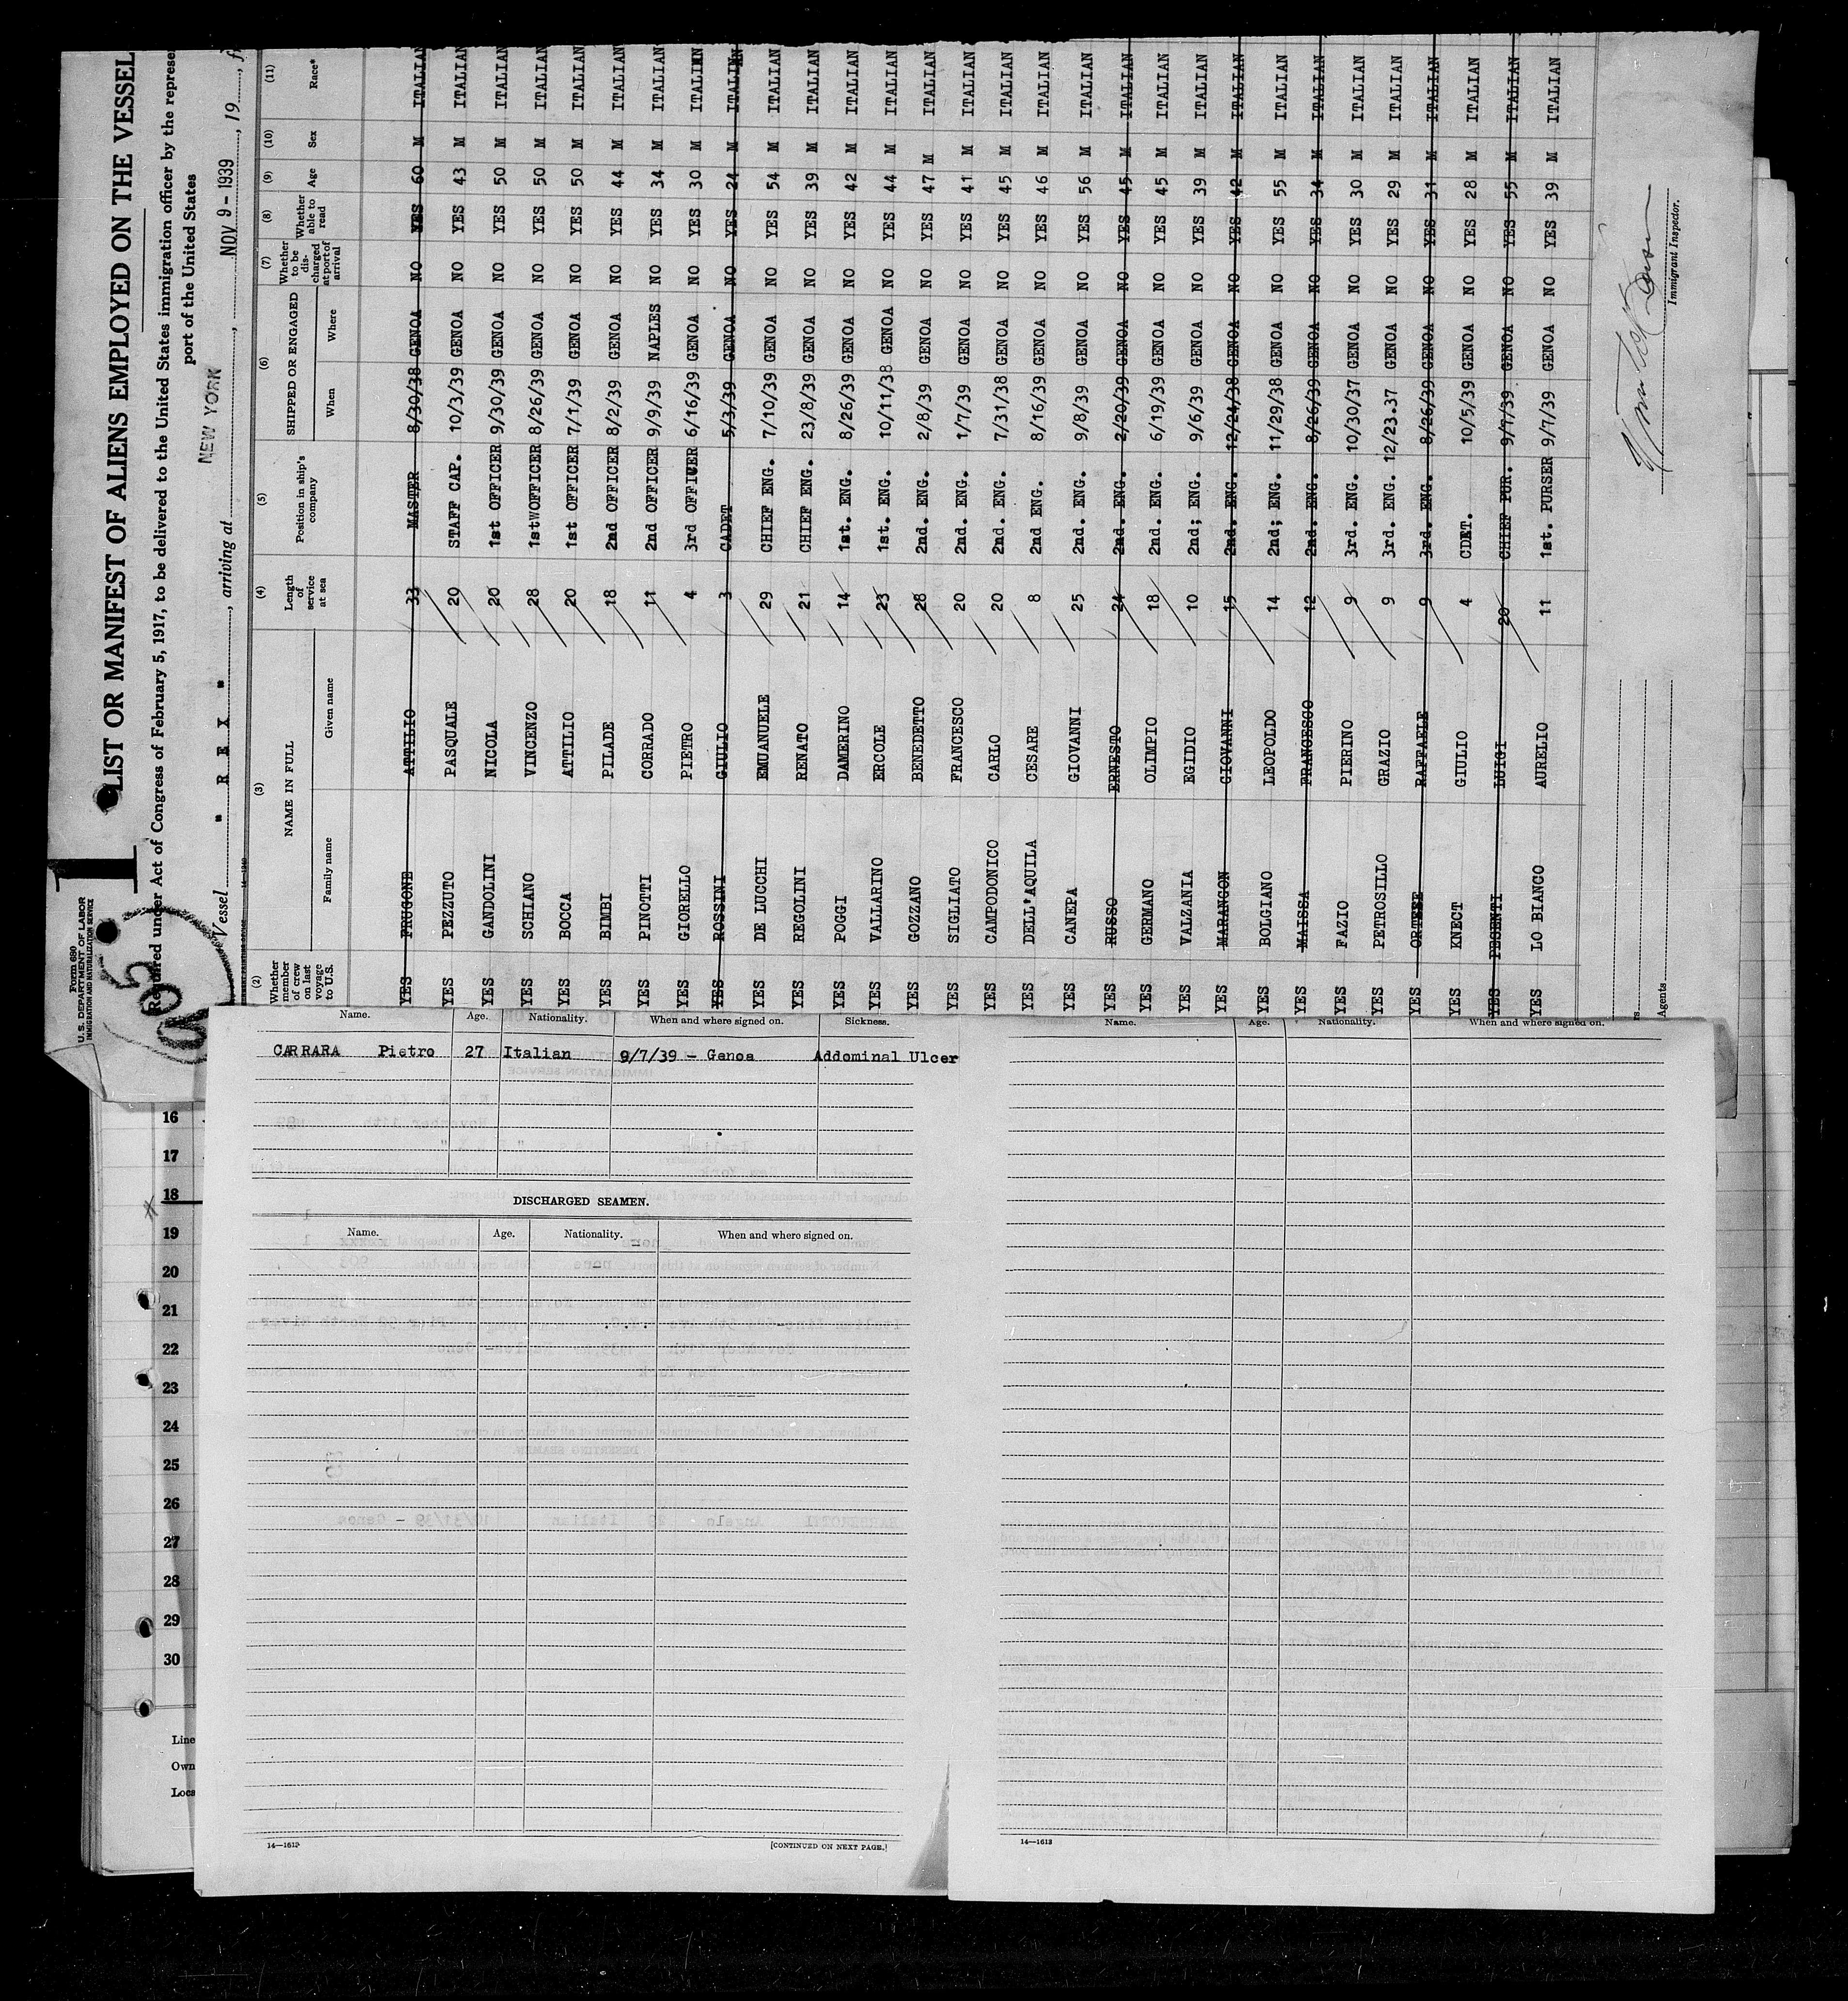 Form 680
U. S. DEPARTMENT OF LABOR
IMMIGRATION AND NATURALIZATION SERVICE
1
LIST OR MANIFEST OF ALIENS EMPLOYED ON THE VESSEL
Required under Act of Congress of February 5, 1917, to be delivered to the United States immigration officer by the represe
port of the United States
Vessel " R E X " , arriving at NEW YORK , NOV 9 - 1939 , 19
(2) (3) (4) (5) (6) (7) (8) (9) (10) (11)
Whether member of crew on last voyage to U.S. NAME IN FULL Length of service at sea Position in ship's company SHIPPED OR ENGAGED Whether to be discharged at port of arrival Whether able to read Age Sex Race*
Family name Given name When Where
YES FRUGONE ATTILIO 33 MASTER 8/30/38 GENOA NO YES 60 M ITALIAN
YES PEZZUTO PASQUALE 20 STAFF CAP. 10/3/39 GENOA NO YES 43 M ITALIAN
YES GANDOLINI NICOLA 20 1st OFFICER 9/30/39 GENOA NO YES 50 M ITALIAN
YES SCHIANO VINCENZO 28 1stWOFFICER 8/26/39 GENOA NO YES 50 M ITALIAN
YES BOCCA ATTILIO 20 1st OFFICER 7/1/39 GENOA NO YES 50 M ITALIAN
YES BIMBI PILADE 18 2nd OFFICER 8/2/39 GENOA NO YES 44 M ITALIAN
YES PINOTTI CORRADO 11 2nd OFFICER 9/9/39 NAPLES NO YES 34 M ITALIAN
YES GIORELLO PIETRO 4 3rd OFFICER 6/16/39 GENOA NO YES 30 M ITALIEN
YES ROSSINI GIULIO 3 CADET 5/3/39 GENOA NO YES 24 M ITALIEN
YES DE LUCCHI EMUANUELE 29 CHIEF ENG. 7/10/39 GENOA NO YES 54 M ITALIAN
YES REGOLINI RENATO 21 CHIEF ENG. 23/8/39 GENOA NO YES 39 M ITALIAN
YES POGGI DAMERINO 14 1st. ENG. 8/26/39 GENOA NO YES 42 M ITALIAN
YES VALLARINO ERCOLE 23 1st. ENG. 10/11/38 GENOA NO YES 44 M ITALIAN
YES GOZZANO BENEDETTO 28 2nd. ENG. 2/8/39 GENOA NO YES 47 M ITALIAN
YES SIGLIATO FRANCESCO 20 2nd. ENG. 1/7/39 GENOA NO YES 41 M ITALIAN
YES CAMPODONICO CARLO 20 2nd. ENG. 7/31/38 GENOA NO YES 45 M ITALIAN
YES DELL'AQUILA CESARE 8 2nd ENG. 8/16/39 GENOA NO YES 46 M ITALIAN
YES CANEPA GIOVANNI 25 2nd. ENG. 9/8/39 GENOA NO YES 56 M ITALIAN
YES RUSSO ERNESTO 24 2nd. ENG. 2/20/39 GENOA NO YES 45 M ITALIAN
YES GERMANO OLIMPIO 18 2nd. ENG. 6/19/39 GENOA NO YES 45 M ITALIAN
YES VALZANIA EGIDIO 10 2nd; ENG. 9/6/39 GENOA NO YES 39 M ITALIAN
YES MARANGON GIOVANNI 15 2nd. ENG. 12/24/38 GENOA NO YES 42 M ITALIAN
YES BOLGIANO LEOPOLDO 14 2nd; ENG. 11/29/38 GENOA NO YES 55 M ITALIAN
YES MAISSA FRANCESCO 12 2nd. ENG. 8/26/39 GENOA NO YES 34 M ITALIAN
YES FAZIO PIERINO 9 3rd. ENG. 10/30/37 GENOA NO YES 30 M ITALIAN
YES PETROSILLO GRAZIO 9 3rd. ENG. 12/23.37 GENOA NO YES 29 M ITALIAN
YES ORTESE RAFFAELE 9 3rd. ENG. 8/26/39 GENOA NO YES 31 M ITALIAN
YES KNECT GIULIO 4 CDET. 10/5/39 GENOA NO YES 28 M ITALIAN
YES PESENTI LUIGI 20 CHIEF PUR. 9/7/39 GENOA NO YES 55 M ITALIAN
YES LO BIANCO AURELIO 11 1st. PURSER 9/7/39 GENOA NO YES 39 M ITALIAN
Immigrant Inspector.
Agents
Name. Age. Nationality. When and where signed on. Sickness.
CARRARA Pietro 27 Italian 9/7/39 - Genoa Addominal Ulcer
DISCHARGED SEAMEN.
Name. Age. Nationality. When and where signed on.
14—1613
[CONTINUED ON NEXT PAGE.]
Name. Age. Nationality. When and where signed on.
14—1613
16
17
18
19
20
21
22
23
24
25
26
27
28
29
30
Line
Own
Loca